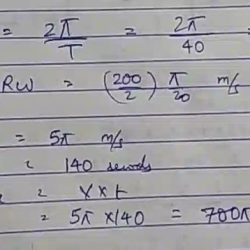 = 2π/T = 2π/40 =
RW = (200/2) π/20 m/s
= 5π m/s
= 140 seconds
= V x t
= 5π x 140 = 700π